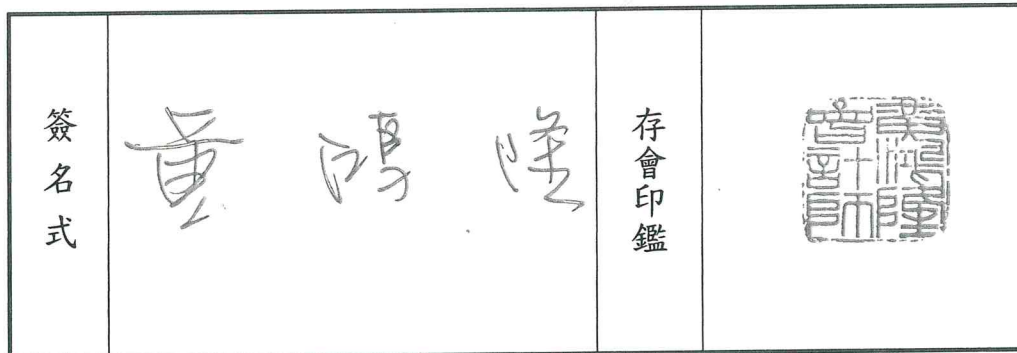 簽名式
黃鴻隆
存會印鑑
黃鴻隆
會計師